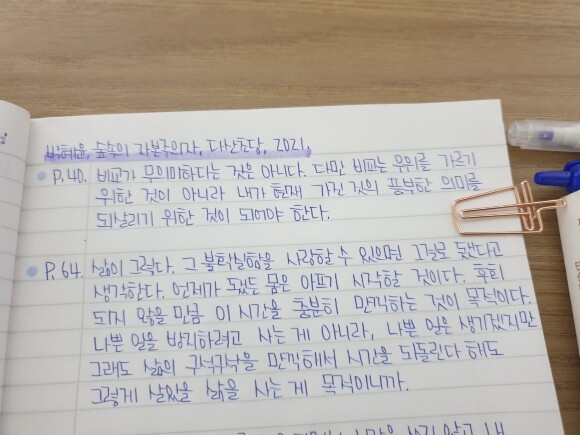 박혜윤, 숲속의 자본주의자, 다산초당, 2021.
P.40. 비교가 무의미하다는 것은 아니다. 다만 비교는 우위를 가르기
위한 것이 아니라 내가 현재 가진 것의 풍부한 의미를
되살리기 위한 것이 되어야 한다.
P.64. 삶이 그렇다. 그 불확실함을 사랑할 수 있으면 그걸로 됐다고
생각한다. 언제가 됐든 몸은 아프기 시작할 것이다. 후회
되지 않을 만큼 이 시간을 충분히 만끽하는 것이 목적이다.
나쁜 일을 방지하려고 사는 게 아니라, 나쁜 일은 생기겠지만
그래도 삶의 구석구석을 만끽해서 시간을 되돌린다 해도
그렇게 살았을 삶을 사는 게 목적이니까.